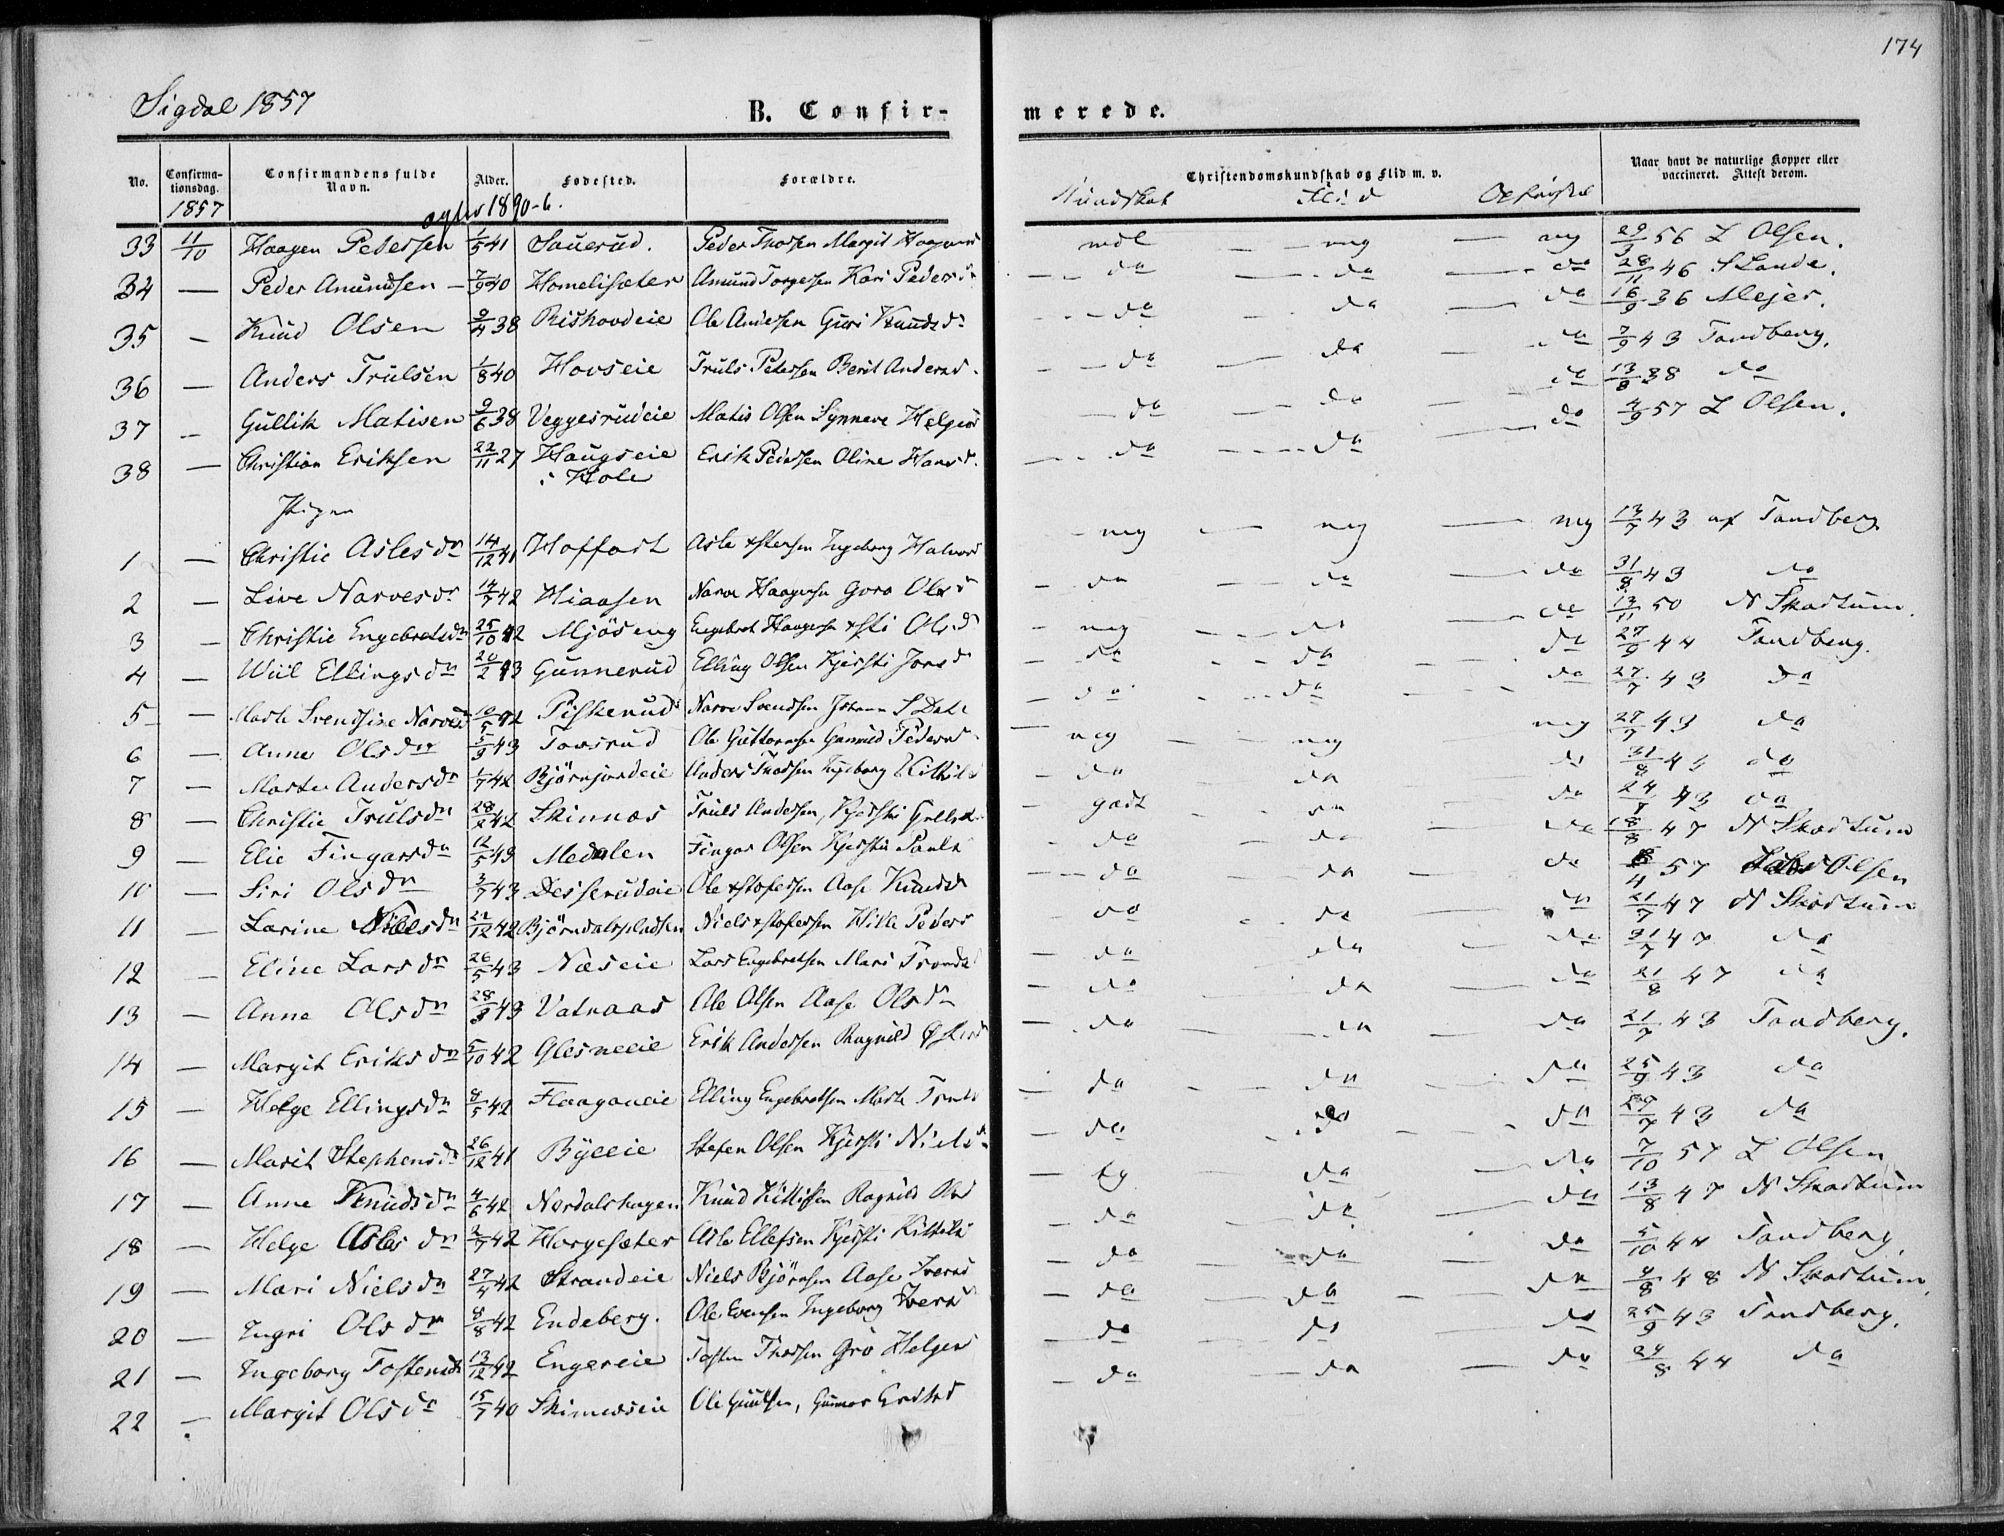 174
Sigdal 1857
B. Confir-
merede.
No. Confirma-tionsdag. Confirmandens fulde Navn. Alder. Fødested. Forældre. Christendomskundskab og Flid m. v. Naar havt de naturlige Kopper eller vaccineret. Attest derom.
1857 Kundskab Flid
33 11/10 Haagen Petersen 1/5 41 Sauerud. Peder Thorsen Margit mdl — mg — mg 29/3 56 L Olsen.
34 — Peder Amundsen — 7/9 40 Homelisæter Amund Torgersen Kari Pedersdr — do — do — do 28/11 46 S Lande.
35 — Knud Olsen 9/4 38 Rishovdeie Ole Andersen Guri Knudsdr — do — do — do 16/9 36 Mejer.
36 — Anders Trulsen 1/8 40 Hovseie Truls Petersen Berit Andersd — do — do — do 7/9 43 Tandberg.
37 — Gullik Matisen 9/6 38 Veggesrudeie Matis Olsen Synneve Helgesd — do — do — do 13/8 38 do
38 — Christian Eriksen 22/11 27 Haugseie Erik Pedersen Oline Hansd. — do — do — do 4/9 57 L Olsen.
i Hole
Piger
1 — Christie Aslesdr 14/12 41 Hoffart Asle Ingeborg Halvors — mg — mg — mg 13/7 43 af Tandberg
2 — Live Narvesdr 14/7 42 Hiaasen Narve Haagensen Goro Olsd — do — do — do 31/8 43 do
3 — Christie Engebretsdr 25/10 42 Mjøseng Engebret Haagensen Olsd — mg — do — do 13/11 50 N Skartum.
4 — Wiil Ellingsdr 20/2 43 Gunnerud Elling Olsen Kjersti Jonsd — do — do — do 27/9 44 Tandberg.
5 — Marte Svendsine Narvesd 10/5 42 Piskerud Narve Svendsen — do — do — do 27/7 43 do
6 — Anne Olsdr 5/9 43 Tovsrud Ole Guttormsen Gunnild Pedersd — mg — mg mg 27/7 43 do
7 — Marte Andersdr 1/7 42 Bjørnjordeie Anders Thorsen Ingeborg Kittils — do do do 31/8 43 do
8 — Christie Trulsdr 28/2 42 Skinnes Truls Andersen, Kjersti — godt do do 24/8 43 do
9 — Elie Fingarsdr 12/5 43 Medalen Fingar Olsen Kjersti Pauls — do — do — do 18/8 47 N Skartum
10 — Siri Olsdr 3/7 43 Desserudeie Ole Aase Knudsd — do — do — do 57 Olsen
11 — Larine Nilsdr 22/12 42 Bjørndalspladsen Niels Hille Peders — do — do — do 21/7 47 N Skartum
12 — Eline Larsdr 26/5 43 Næseie Lars Engebretsen Mari Tronds — do — do — do 21/7 47 do
13 — Anne Olsdr 28/3 43 Vatnaas Ole Olsen Aase Olsdr — do — do — do 21/8 47 do
14 — Margit Eriksdr 5/10 42 Glesneeie Erik Andersen Ragnild — do — do — do 21/7 43 Tandberg.
15 — Helge Ellingsdr 8/5 42 Haaganeie Elling Engebretsen Marte — do — do — do 25/9 43 do
16 — Marit Stephensdr 26/12 41 Byeeie Stefen Olsen Kjersti Nielsdr — do — do — do 27/7 43 do
17 — Anne Knudsdr 4/6 42 Nordalshagen Knud Kittilsen Ragnild Olsd — tg — do — do 7/10 57 L Olsen
18 — Helge Aslesdr 2/7 42 Horgesæter Asle Ellefsen Kjersti Kittels — do — do — do 13/8 47 N Skartum
19 — Mari Nielsdr 27/4 42 Strandeie Niels Bjørnsen Aase Iversd — do — do — do 5/10 44 Tandberg
20 — Ingri Olsdr 8/8 42 Endeberg. Ole Evensen Ingeborg Iversd — do — do — do 9/8 48 N Skartum
21 — Ingeborg Tostensdr 13/12 42 Engereie Tosten Thorsen Gro Helges — do — do — do 25/9 43 Tandberg.
22 — Margit Olsdr 15/7 40 Skinneseie Ole Gunner — do — do — do 24/8 44 do